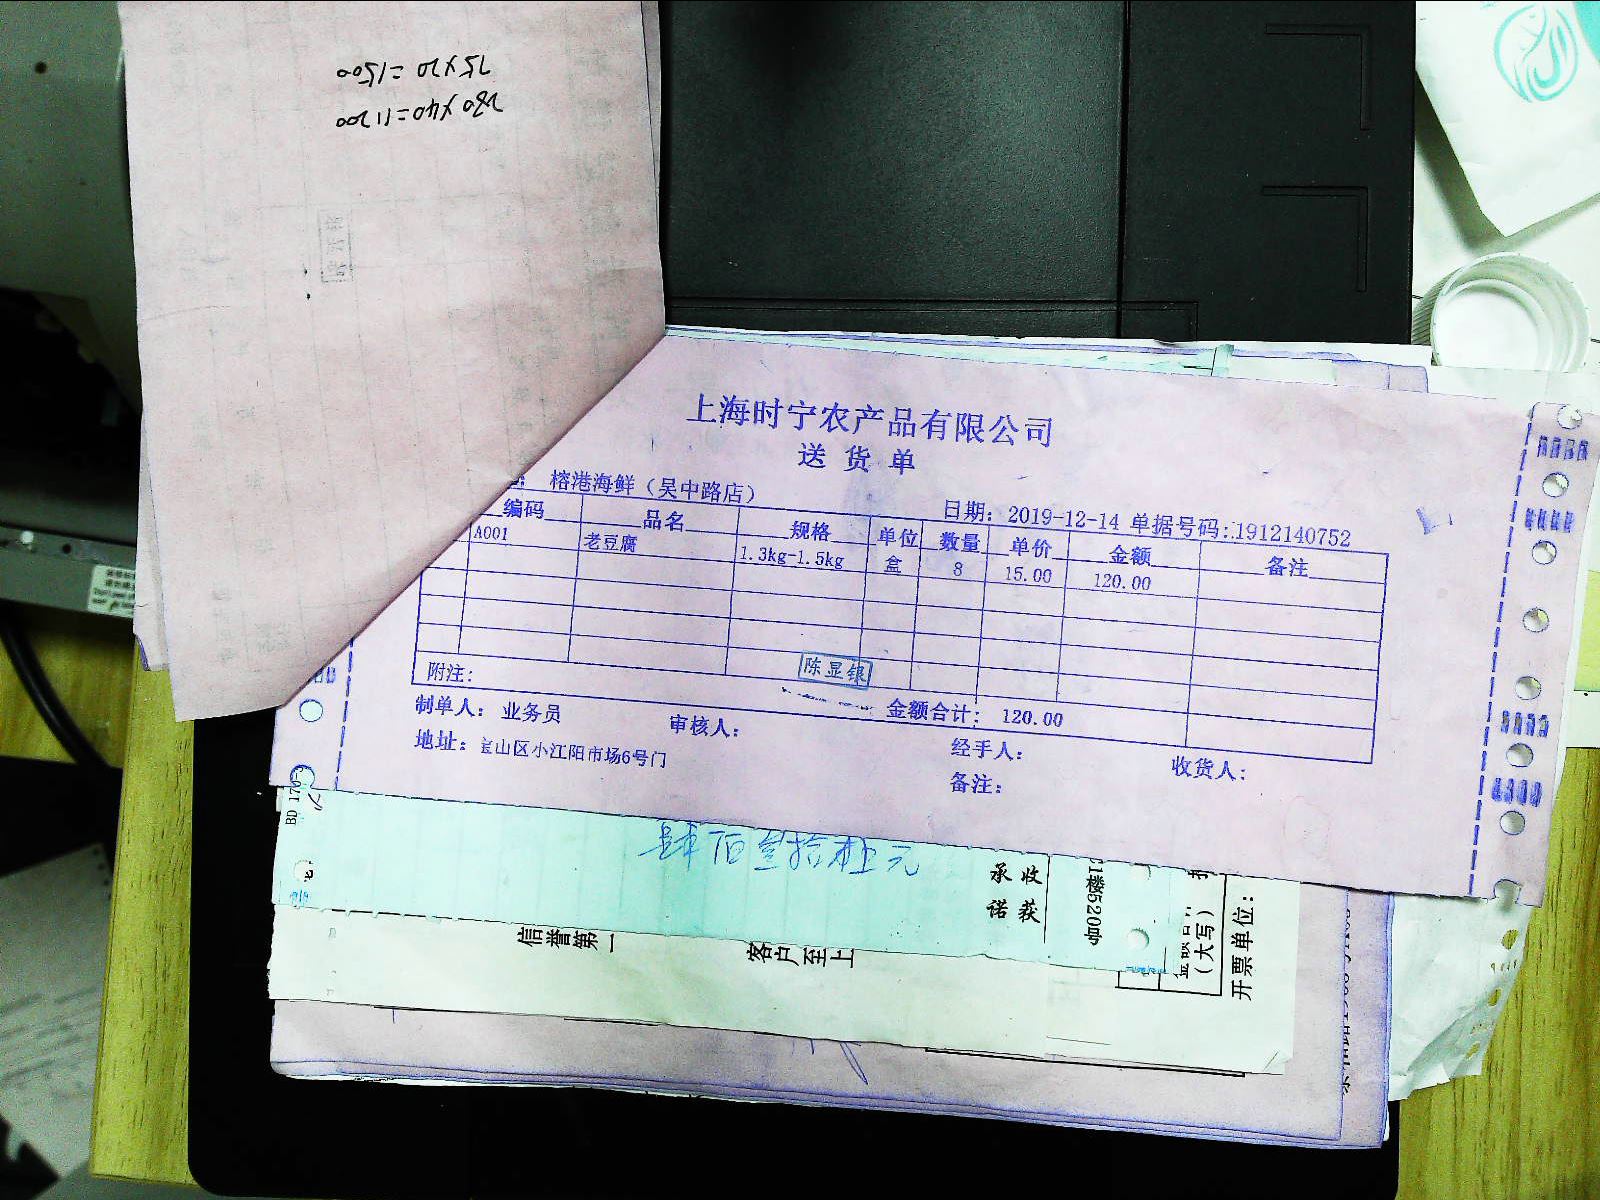 280×40=11200
75×20=1500
上海时宁农产品有限公司
送货单
榕港海鲜（吴中路店）
日期：2019-12-14 单据号码：1912140752
编码 品名 规格 单位 数量 单价 金额 备注
A001 老豆腐 1.3kg-1.5kg 盒 8 15.00 120.00
附注：
陈显银
金额合计： 120.00
制单人：业务员 审核人： 经手人： 收货人：
地址：宝山区小江阳市场6号门
备注：
肆佰叁拾伍元
承诺
收获
1楼520吧
（大写）
开票单位：
信誉第一
客户至上